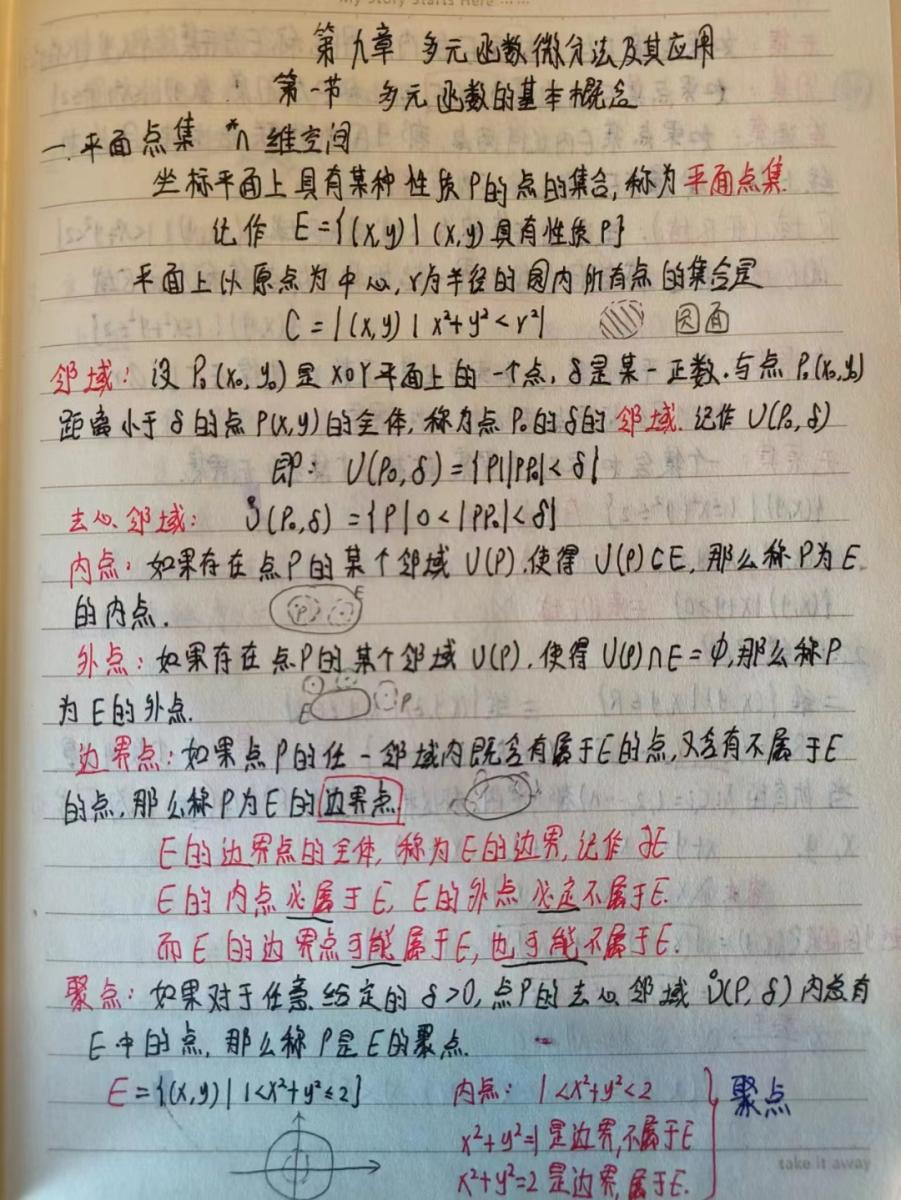 My Story Starts Here ······
第九章 多元函数微分法及其应用
第一节 多元函数的基本概念
一.平面点集 *n维空间
坐标平面上具有某种性质P的点的集合,称为平面点集.
记作 E={(x,y)|(x,y)具有性质P}
平面上以原点为中心,r为半径的圆内所有点的集合是
C={(x,y)|x²+y²<r²} 圆面
邻域:设P₀(x₀,y₀)是XOY平面上的一个点,δ是某一正数.与点P₀(x₀,y₀)
距离小于δ的点P(x,y)的全体,称为点P₀的δ的邻域.记作U(P₀,δ)
即: U(P₀,δ)={P||PP₀|<δ}
去心邻域: Ů(P₀,δ)={P|0<|PP₀|<δ}
内点:如果存在点P的某个邻域U(P).使得U(P)⊂E,那么称P为E
的内点. P E
外点:如果存在点P的某个邻域U(P),使得U(P)∩E=φ,那么称P
为E的外点. E P
边界点:如果点P的任一邻域内既含有属于E的点,又含有不属于E
的点,那么称P为E的边界点
E的边界点的全体,称为E的边界,记作∂E
E的内点必属于E,E的外点必定不属于E.
而E的边界点可能属于E,也可能不属于E.
聚点:如果对于任意给定的δ>0,点P的去心邻域Ů(P,δ)内总有
E中的点,那么称P是E的聚点.
E={(x,y)|1<x²+y²≤2} 内点: 1<x²+y²<2 聚点
x²+y²=1是边界,不属于E
x²+y²=2是边界,属于E.
take it away